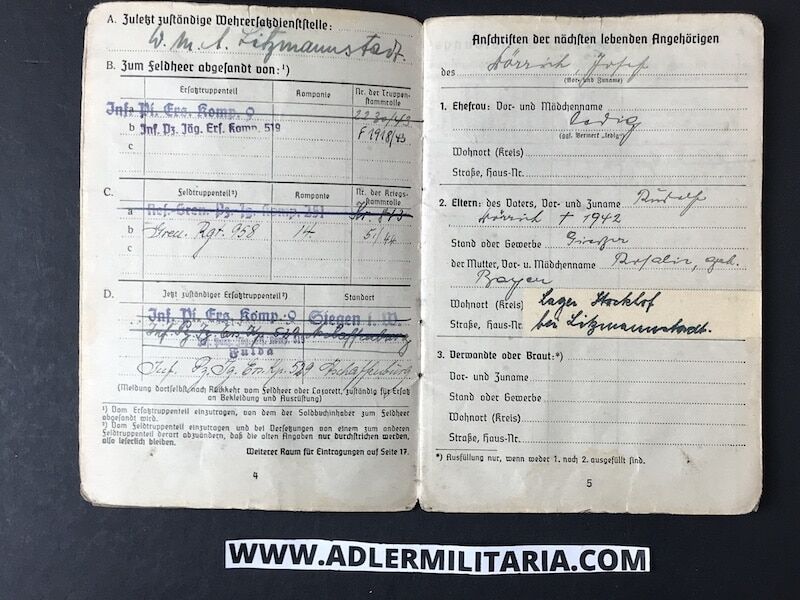 A. Zuletzt zuständige Wehrersatzdienststelle:
W. M. A. Litzmannstadt.
B. Zum Feldheer abgesandt von:¹)
Ersatztruppenteil Kompanie Nr. der Truppen-stammrolle
a Inf. Pi. Ers. Komp. 9 2230/43
b Inf. Pz. Jäg. Ers. Komp. 519 F 1918/43
c
C. Feldtruppenteil²) Kompanie Nr. der Kriegs-stammrolle
a Res. Gren. Pz. Jg. Komp. 251
b Gren. Rgt. 958 14. 51/44
c
D. Jetzt zuständiger Ersatztruppenteil²) Standort
Inf. Pi. Ers. Komp. 9 Siegen i. W.
Fulda
Inf. Pz. Jg. Ers. Kp. 529 Aschaffenburg
(Meldung dortselbst nach Rückkehr vom Feldheer oder Lazarett, zuständig für Ersatz
an Bekleidung und Ausrüstung)
¹) Vom Ersatztruppenteil einzutragen, von dem der Soldbuchinhaber zum Feldheer
abgesandt wird.
²) Vom Feldtruppenteil einzutragen und bei Versetzungen von einem zum anderen
Feldtruppenteil derart abzuändern, daß die alten Angaben nur durchstrichen werden,
also leserlich bleiben.
Weiterer Raum für Eintragungen auf Seite 17.
4
Anschriften der nächsten lebenden Angehörigen
des Dörrich, Josef
(Vor- und Zuname)
1. Ehefrau: Vor- und Mädchenname
ledig
(ggf. Vermerk „ledig")
Wohnort (Kreis)
Straße, Haus-Nr.
2. Eltern: des Vaters, Vor- und Zuname Rudolf
Dörrich † 1942
Stand oder Gewerbe
der Mutter, Vor- u. Mädchenname Rosalie, geb.
Bayer
Wohnort (Kreis) Lager Stocklof
Straße, Haus-Nr. bei Litzmannstadt.
3. Verwandte oder Braut:*)
Vor- und Zuname
Stand oder Gewerbe
Wohnort (Kreis)
Straße, Haus-Nr.
*) Ausfüllung nur, wenn weder 1. noch 2. ausgefüllt sind.
5
WWW.ADLERMILITARIA.COM